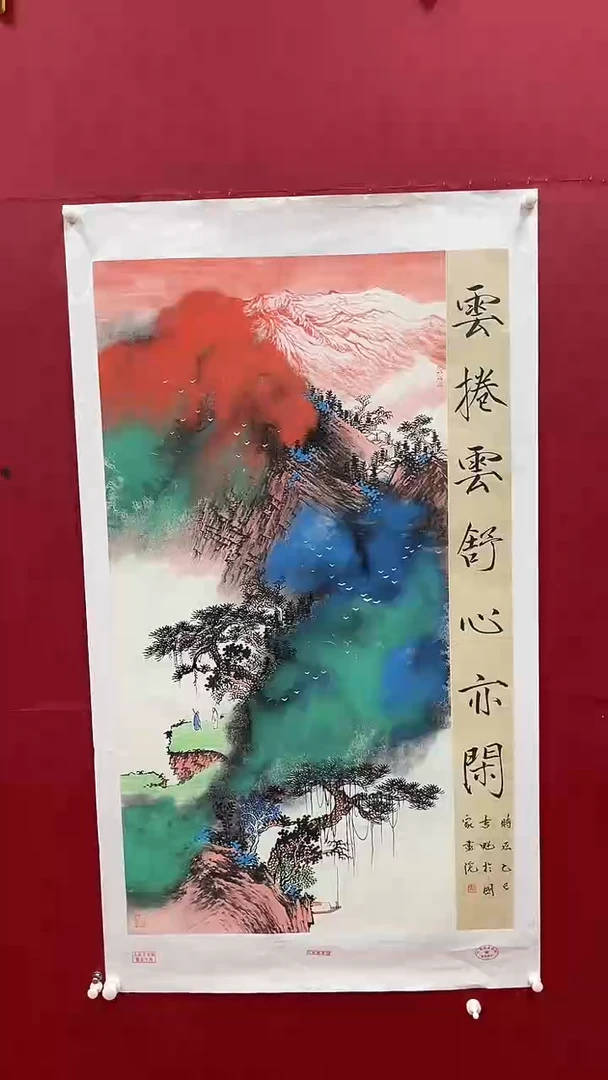 雲捲雲舒心亦閑
時在乙巳
書題於國
家畫院